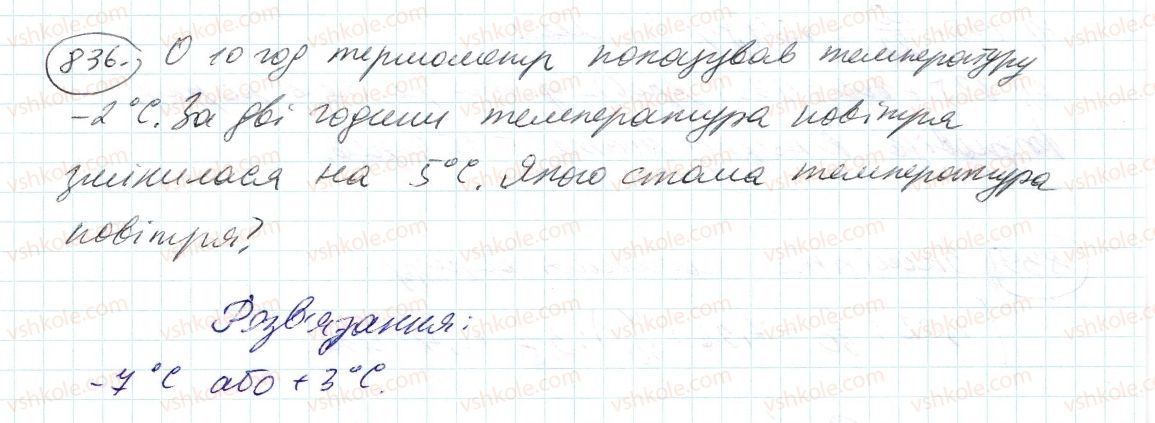 836. О 10 год термометр показував температуру
-2°C. За дві години температура повітря
змінилася на 5°C. Якою стала температура
повітря?
Розв'язання:
-7°C або +3°C.